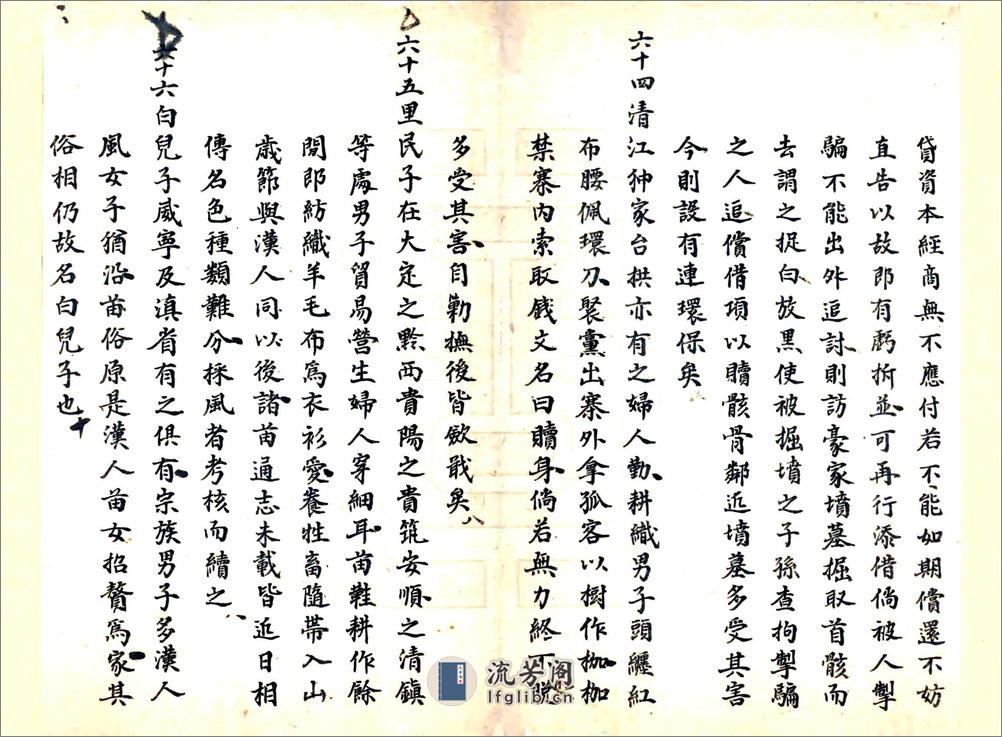 貸資本經商無不應付若不能如期償還不妨
直告以故即有虧折並可再行添借倘被人掣
騙不能出外追討則訪豪家墳墓掘取首骸而
去謂之捉白放黑使被掘墳之子孫查拘掣騙
之人追償借項以贖骸骨鄰近墳墓多受其害
今則設有連環保矣
六十四清江狆家台拱亦有之婦人勤耕織男子頭纏紅
布腰佩環刀聚黨出寨外拿孤客以樹作枷枷
禁寨內索取錢文名曰贖身倘若無力終不脫
多受其害自勦撫後皆斂戢矣八
六十五里民子在大定之黔西貴陽之貴筑安順之清鎮
等處男子貿易營生婦人穿細耳苗鞋耕作餘
閒即紡織羊毛布為衣衫愛養牲畜隨帶入山
歲節與漢人同以後諸苗通志未載皆近日相
傳名色種類難分採風者考核而續之八
六十六白兒子威寧及滇省有之俱有宗族男子多漢人
風女子猶沿苗俗原是漢人苗女招贅為家其
俗相仍故名白兒子也十
流芳阁
lfglib.cn